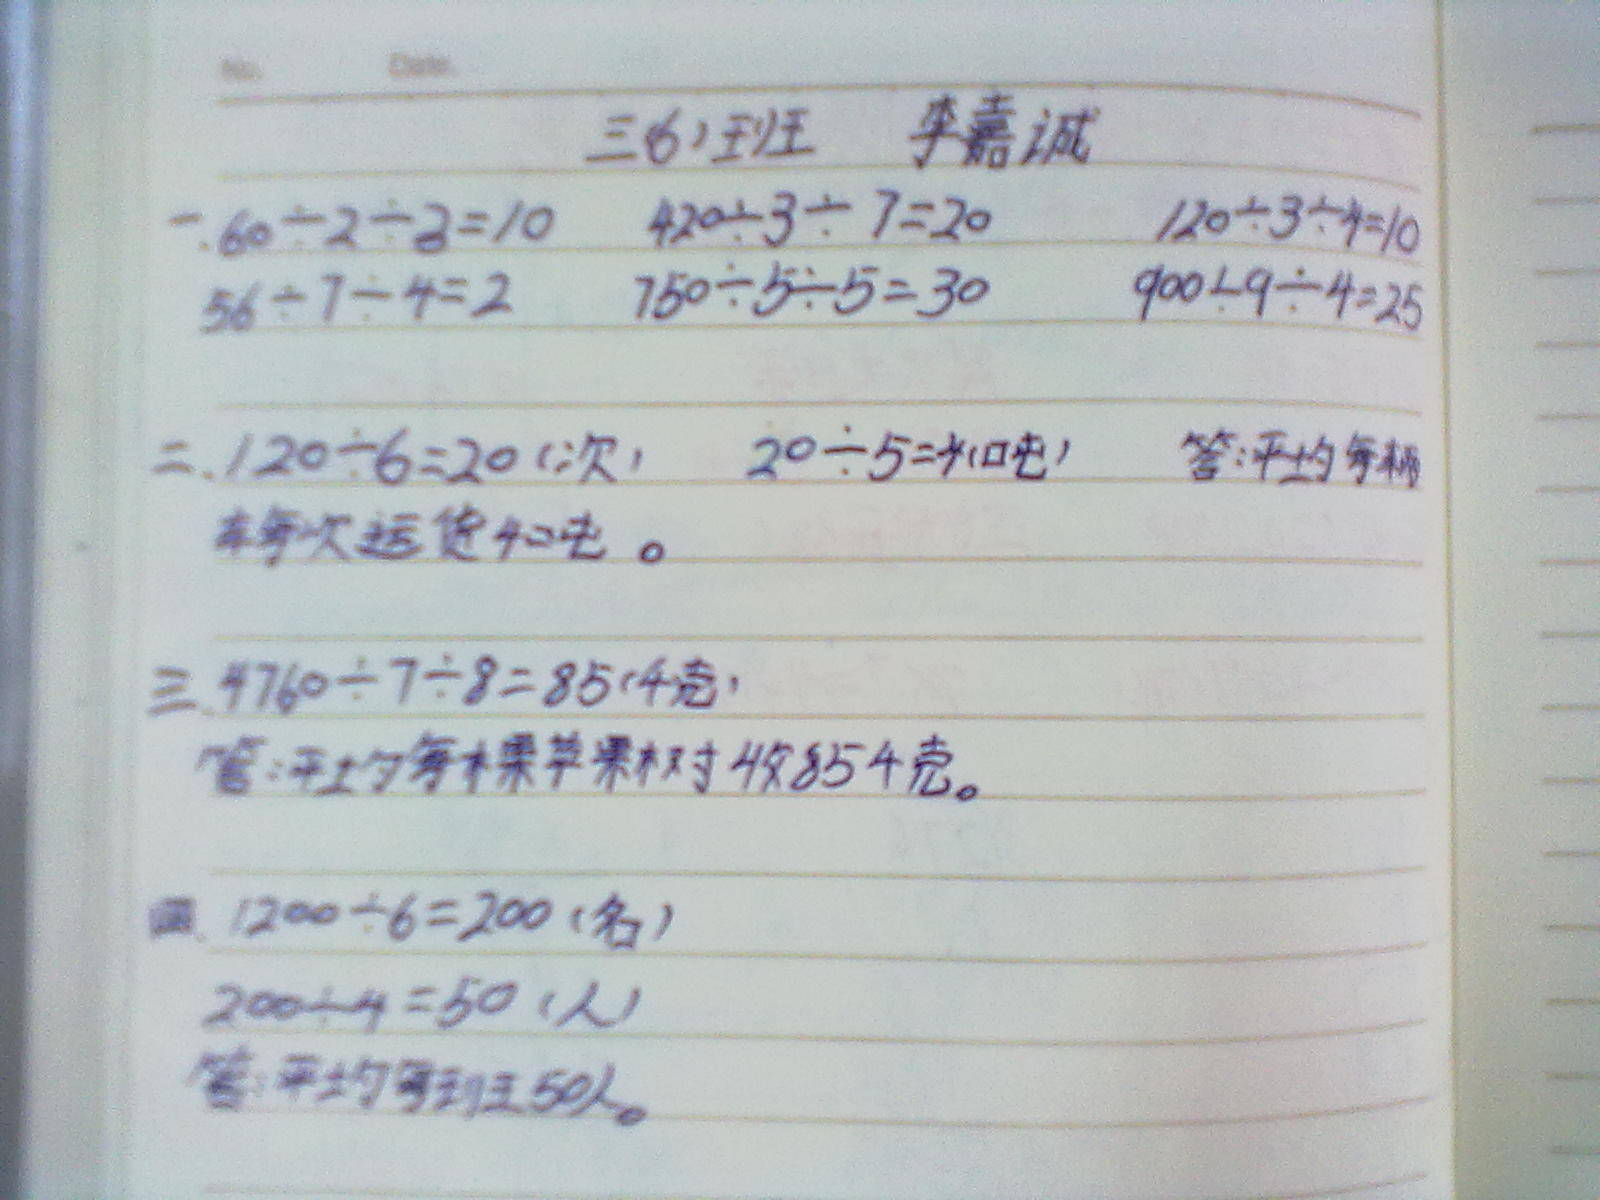 No. Date.
三(6)班 李嘉诚
一.60÷2÷3=10 420÷3÷7=20 120÷3÷4=10
56÷7÷4=2 750÷5÷5=30 900÷9÷4=25
二.120÷6=20(次) 20÷5=4(吨) 答:平均每辆
车每次运货4吨。
三.4760÷7÷8=85(千克)
答:平均每棵苹果树收85千克。
四.1200÷6=200(名)
200÷4=50(人)
答:平均每班50人。